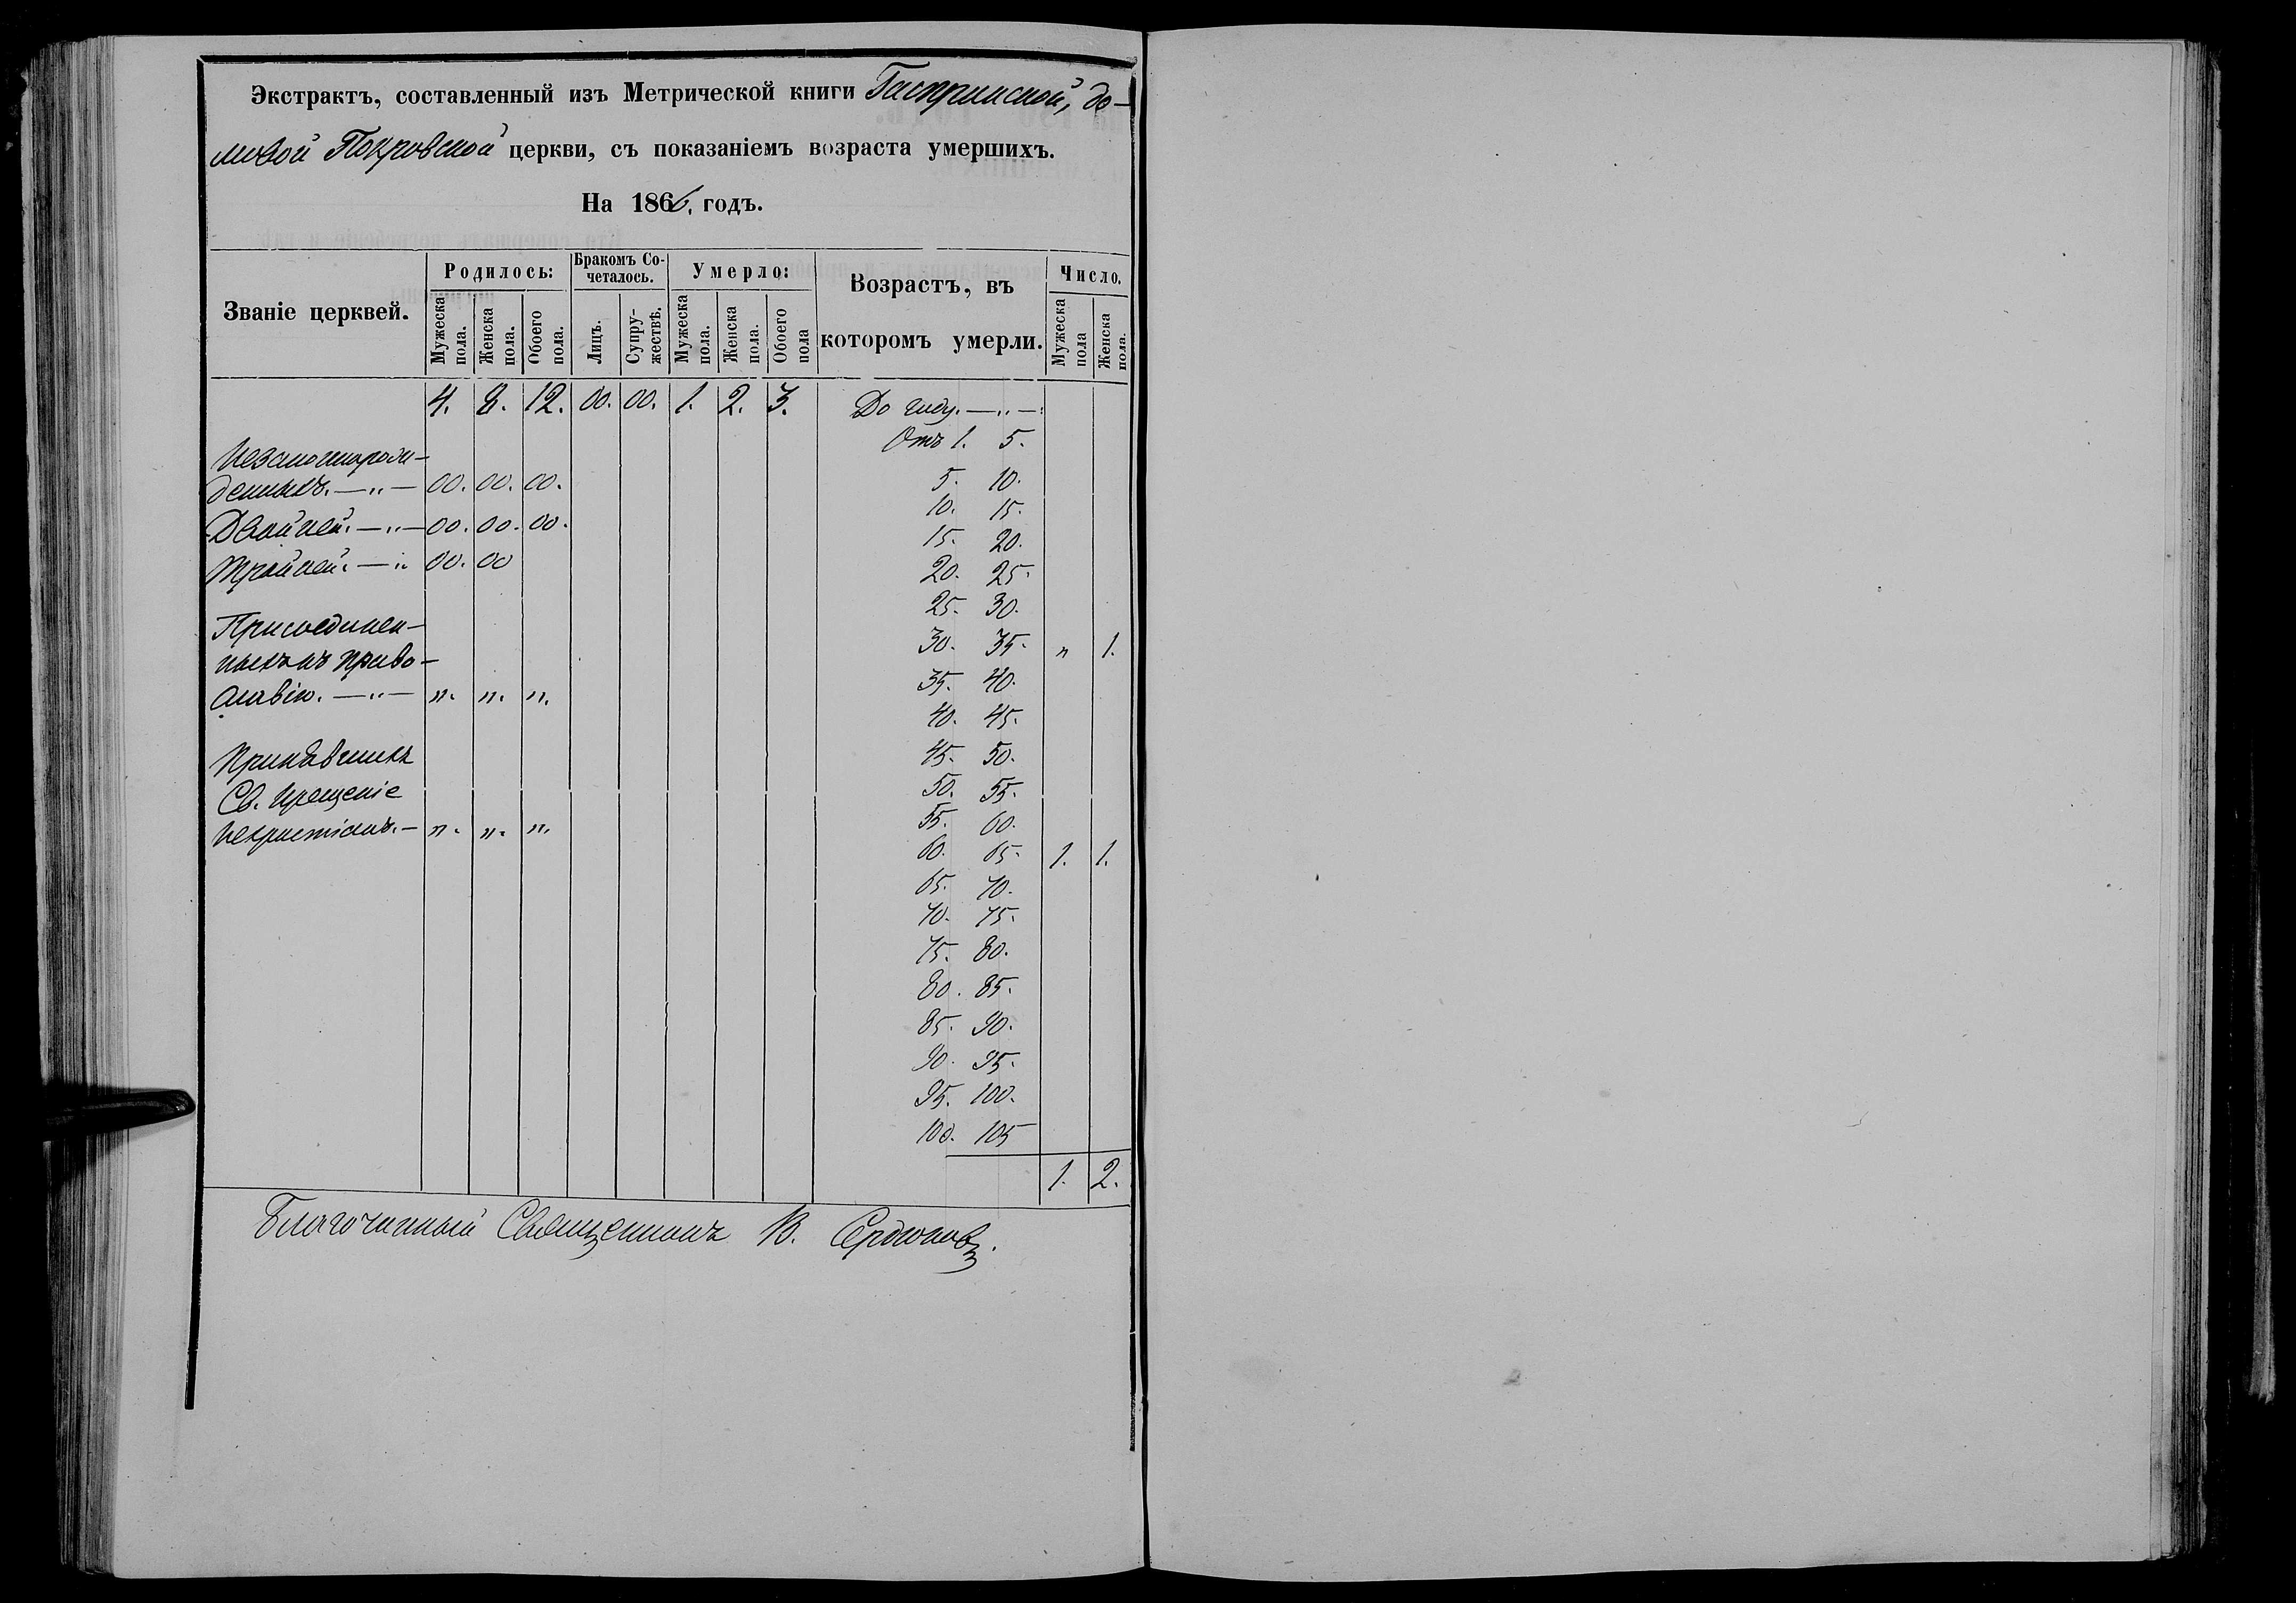 Экстрактъ, составленный изъ Метрической книги Гаспринской, до-
мовой Покровской церкви, съ показаніемъ возраста умершихъ.
На 1866. годъ.
Званіе церквей.
Родилось:
Мужеска пола.
Женска пола.
Обоего пола.
Бракомъ Со-
четалось.
Лицъ.
Супру-
жествъ.
Умерло:
Мужеска пола.
Женска пола.
Обоего пола
Возрастъ, въ
которомъ умерли.
Число.
Мужеска пола
Женска пола.
4. 8. 12. 00. 00. 1. 2. 3. До году. — „ —
Отъ 1. 5.
Незаконнорож-
денныхъ. — „ — 00. 00. 00.
5. 10.
10. 15.
Двойней. — „ — 00. 00. 00.
15. 20.
Тройней. — „ 00. 00
20. 25.
25. 30.
Присоединен-
30. 35. „ 1.
ныхъ къ право-
35. 40.
славію. — „ — „. „. „.
40. 45.
Принявшихъ
45. 50.
Св. Крещеніе
50. 55.
нехристіанъ. — „. „. „.
55. 60.
60. 65. 1. 1.
65. 70.
70. 75.
75. 80.
80. 85.
85. 90.
90. 95.
95. 100.
100. 105
1. 2.
Благочинный Священникъ В. Сердюковъ.